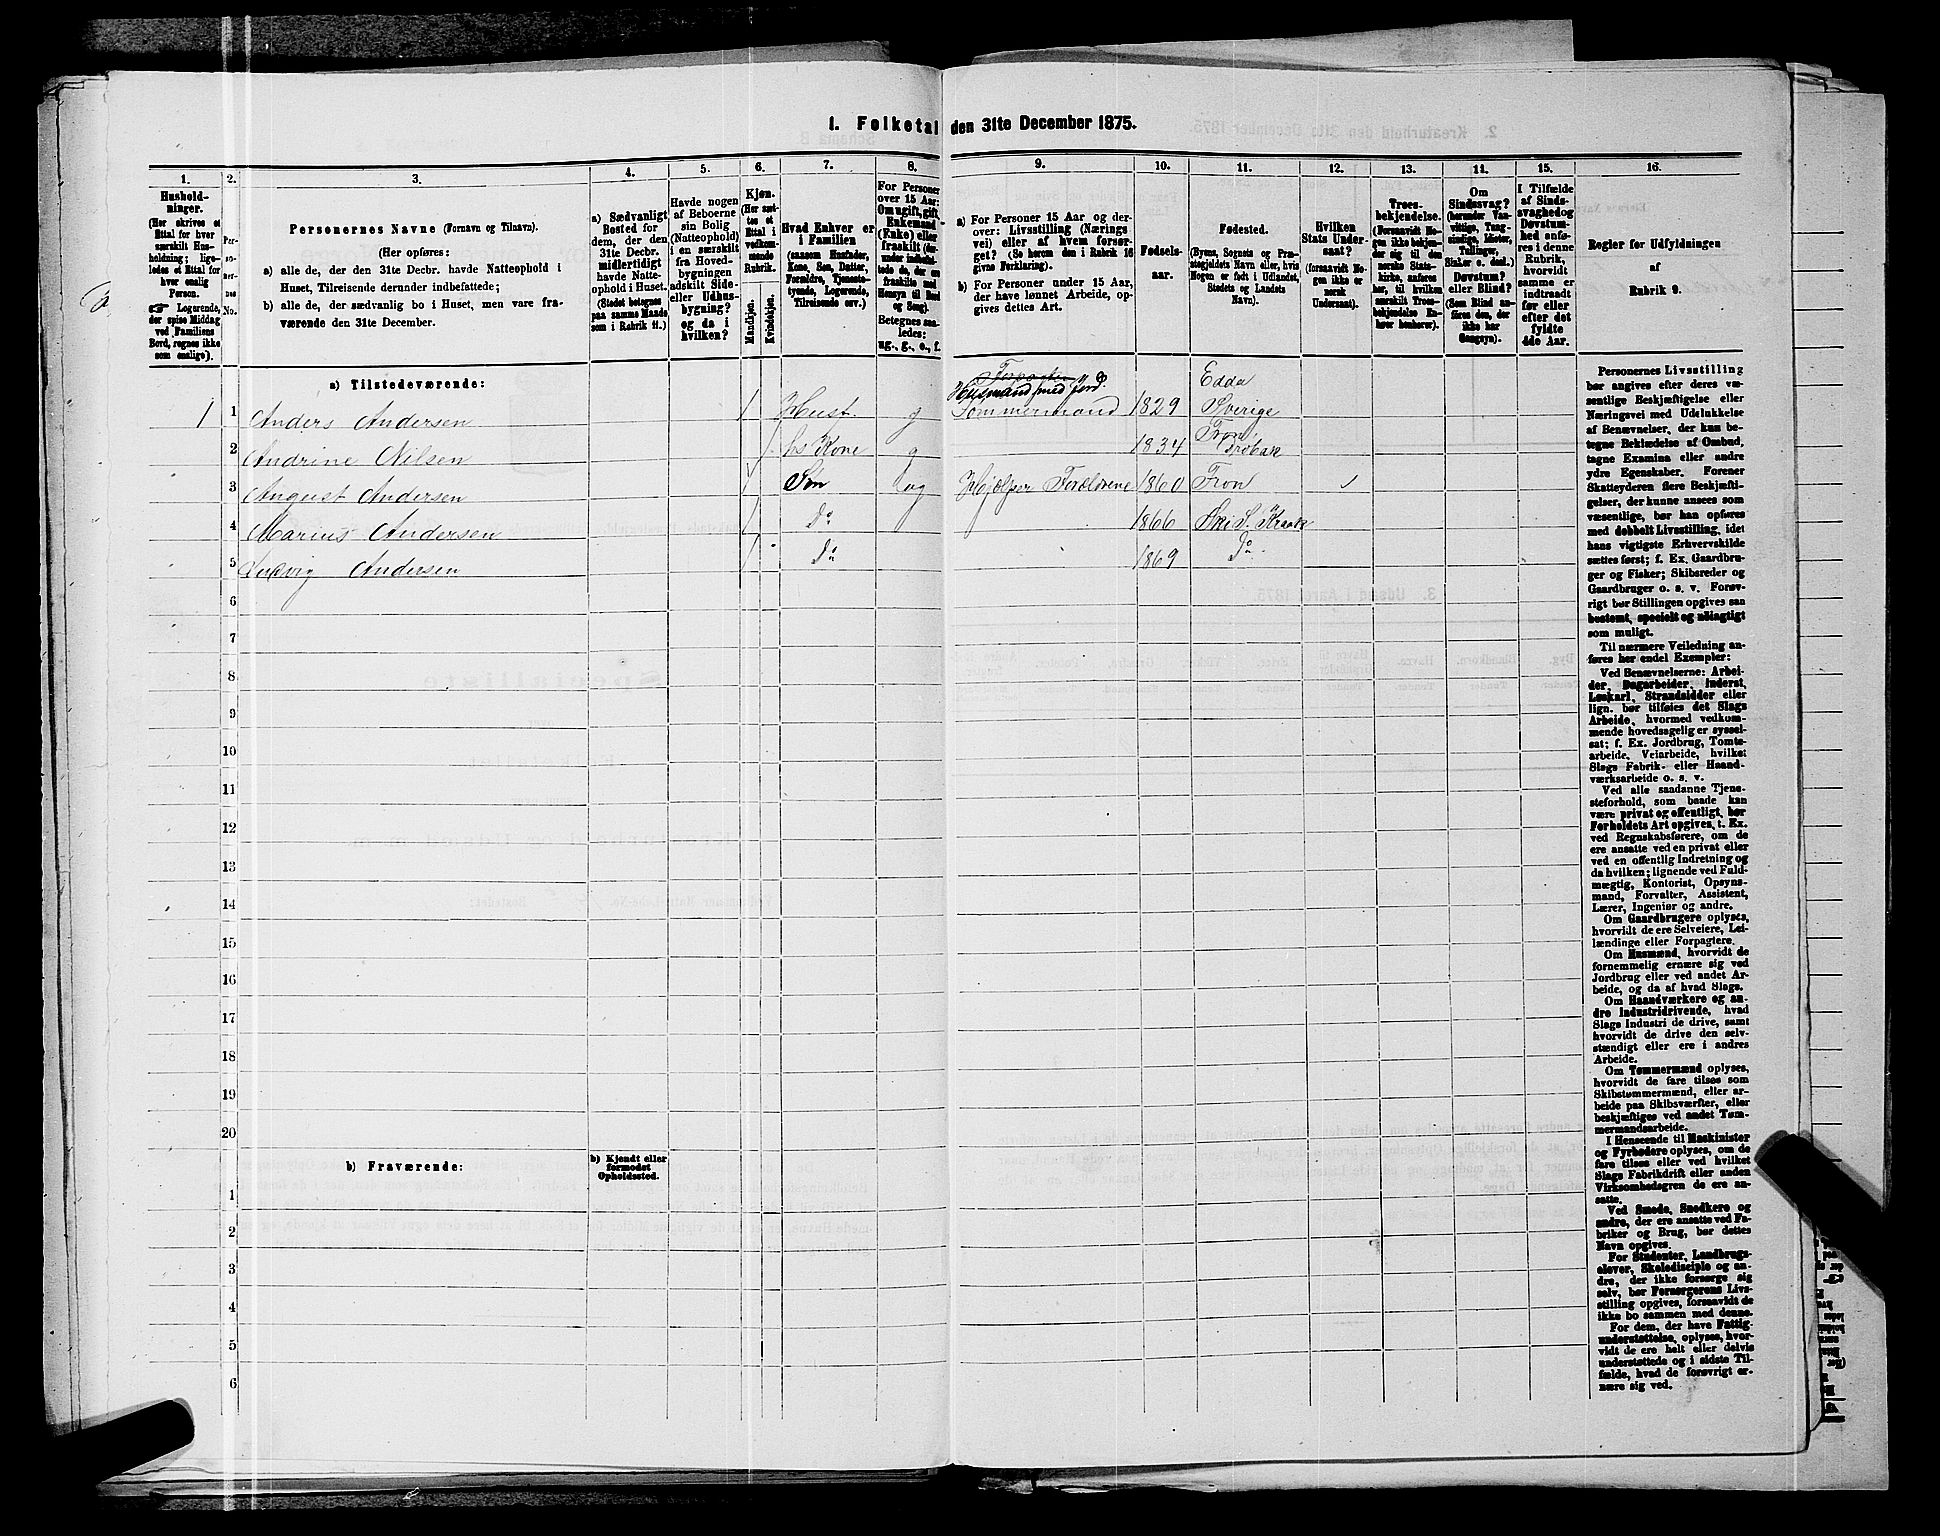 1. Folketal den 31te December 1875.
1. 2. 3. 4. 5. 6. 7. 8. 9. 10. 11. 12. 13. 14. 15. 16.
Hushold-
ninger.
(Her skrives et
Ettal for hver
særskilt Hus-
holdning; lige-
ledes et Ettal for
hver enlig
Person.
Logerende,
der spise Middag
ved Familiens
Bord, regnes ikke
som enlige).
Per-
so-
ner-
nes
No.
Personernes Navne (Fornavn og Tilnavn).
(Her opføres:
a) alle de, der den 31te Decbr. havde Natteophold i
Huset, Tilreisende derunder indbefattede;
b) alle de, der sædvanlig bo i Huset, men vare fra-
værende den 31te December.
a) Sædvanligt
Bosted for
dem, der den
31te Decbr.
midlertidigt
havde Natte-
ophold i Huset.
(Stedet betegnes
paa samme Maade
som i Rubrik 11.)
Havde nogen
af Beboerne
sin Bolig
(Natteophold)
i en særskilt
fra Hoved-
bygningen
adskilt Side-
eller Udhus-
bygning?
og da i
hvilken?
Kjøn.
(Her sæt-
tes et
Ettal i
vedkom-
mende
Rubrik.
Mandkjøn.
Kvindekjøn.
Hvad Enhver er
i Familien
(saasom Husfader,
Kone, Søn, Datter,
Forældre, Tjeneste-
tyende, Logerende,
Tilreisende osv.)
For Personer
over 15 Aar:
Om ugift, gift,
Enkemand
(Enke) eller
fraskilt (der-
under indbefat-
tede de, der ere
fraskilte med
Hensyn til Bord
og Seng).
Betegnes saa-
ledes:
ug., g., e., f.
a) For Personer 15 Aar og der-
over: Livsstilling (Nærings-
vei) eller af hvem forsør-
get? (Se herom den i Rubrik 16
givne Forklaring).
b) For Personer under 15 Aar,
der have lønnet Arbeide, op-
gives dettes Art.
Fødsels-
aar.
Fødested.
(Byens, Sognets og Præ-
stegjeldets Navn eller, hvis
Nogen er født i Udlandet,
Stedets og Landets
Navn).
Hvilken
Stats Under-
saat?
(forsaavidt No-
gen ikke er
norsk
Undersaat).
Troes-
bekjendelse.
(Forsaavidt No-
gen ikke bekjen-
der sig til den
norske Stats-
kirke, anføres
her, til hvilken
særskilt Troes-
bekjendelse En-
hver henhører).
Om
Sindssvag?
(herunder Van-
vittige, Tung-
sindige, Idioter,
Tullinger,
Sinker o. desl.)
Døvstum?
eller Blind?
(Som Blind an-
føres den, der
ikke har
Gangsyn).
I Tilfælde
af Sinds-
svaghed og
Døvstum-
hed anfø-
res i denne
Rubrik,
hvorvidt
samme er
indtraadt
før eller
efter det
fyldte
4de Aar.
Regler for Udfyldningen
af
Rubrik 9.
a) Tilstedeværende:
Forpagter
Husmand med Jord
1 1 Anders Andersen 1 Husf. g Tømmermand 1829 Edda Sverige
2 Andrine Nilsen 1 hs Kone g 1834 Fron, Drøbak
3 August Andersen 1 Søn ug Hjælper Forældrene 1860 Fron
4 Marius Andersen 1 do 1866 Ski S. Kraak
5 Ludvig Andersen 1 do 1869 do
6
7
8
9
10
11
12
13
14
15
16
17
18
19
20
b) Fraværende:
b) Kjendt eller
formodet
Opholdssted.
1
2
3
4
5
6
Personernes Livsstilling
bør angives efter deres væ-
sentlige Beskjæftigelse eller
Næringsvei med Udelukkelse
af Benævnelser, der kun be-
tegne Beklædelse af Ombud,
tagne Examina eller andre
ydre Egenskaber. Forener
Skatteyderen flere Beskjæfti-
gelser, der kunne ansees som
væsentlige, bør han opføres
med dobbelt Livsstilling, idet
hans vigtigste Erhvervskilde
sættes først; f. Ex. Gaardbru-
ger og Fisker; Skibsreder og
Gaardbruger o. s. v. Forøv-
rigt bør Stillingen opgives saa
bestemt, specielt og nøiagtigt
som muligt.
Til nærmere Veiledning an-
føres her endel Exempler:
Ved Benævnelserne: Arbei-
der, Dagarbeider, Inderst,
Løskarl, Strandsidder eller
lign. bør tilføies det Slags
Arbeide, hvormed vedkom-
mende hovedsagelig er syssel-
sat; f. Ex. Jordbrug, Tomte-
arbeide, Veiarbeide, hvilket
Slags Fabrik- eller Haand-
værksarbeide o. s. v.
Ved alle saadanne Tjene-
steforhold, som baade kan
være privat og offentligt, bør
Forholdets Art opgives, t. Ex.
ved Regnskabsførere, om de
ere ansatte ved en privat eller
ved en offentlig Indretning og
da hvilken; lignende ved Fuld-
mægtig, Kontorist, Opsyns-
mand, Forvalter, Assistent,
Lærer, Ingeniør og andre.
Om Gaardbrugere oplyses,
hvorvidt de ere Selveiere, Lei-
lændinge eller Forpagtere.
Om Husmænd, hvorvidt de
fornemmelig ernære sig ved
Jordbrug eller ved andet Ar-
beide, og da af hvad Slags.
Om Haandværkere og an-
dre Industridrivende, hvad
Slags Industri de drive, samt
hvorvidt de drive den selv-
stændigt eller ere i andres
Arbeide.
Om Tømmermænd oplyses,
hvorvidt de fare tilsøs som
Skibstømmermænd, eller ar-
beide paa Skibsværfter, eller
beskjæftiges ved andet Tøm-
mermandsarbeide.
I Henseende til Maskinister
og Fyrbødere oplyses, om de
fare tilsøs eller ved hvilket
Slags Fabrikdrift eller anden
Virksomhedsgren de ere an-
satte.
Ved Smede, Snedkere og
andre, der ere ansatte ved Fa-
briker og Brug, bør dettes
Navn opgives.
For Studenter, Landbrugs-
elever, Skoledisciple og an-
dre, der ikke forsørge sig
selv, bør Forsørgerens Livs-
stilling opgives, forsaavidt de
ikke bo sammen med denne.
For dem, der have Fattig-
understøttelse, oplyses, hvor-
vidt de ere helt eller delvis
understøttede og i sidste Til-
fælde, hvad de forøvrigt er-
nære sig ved.